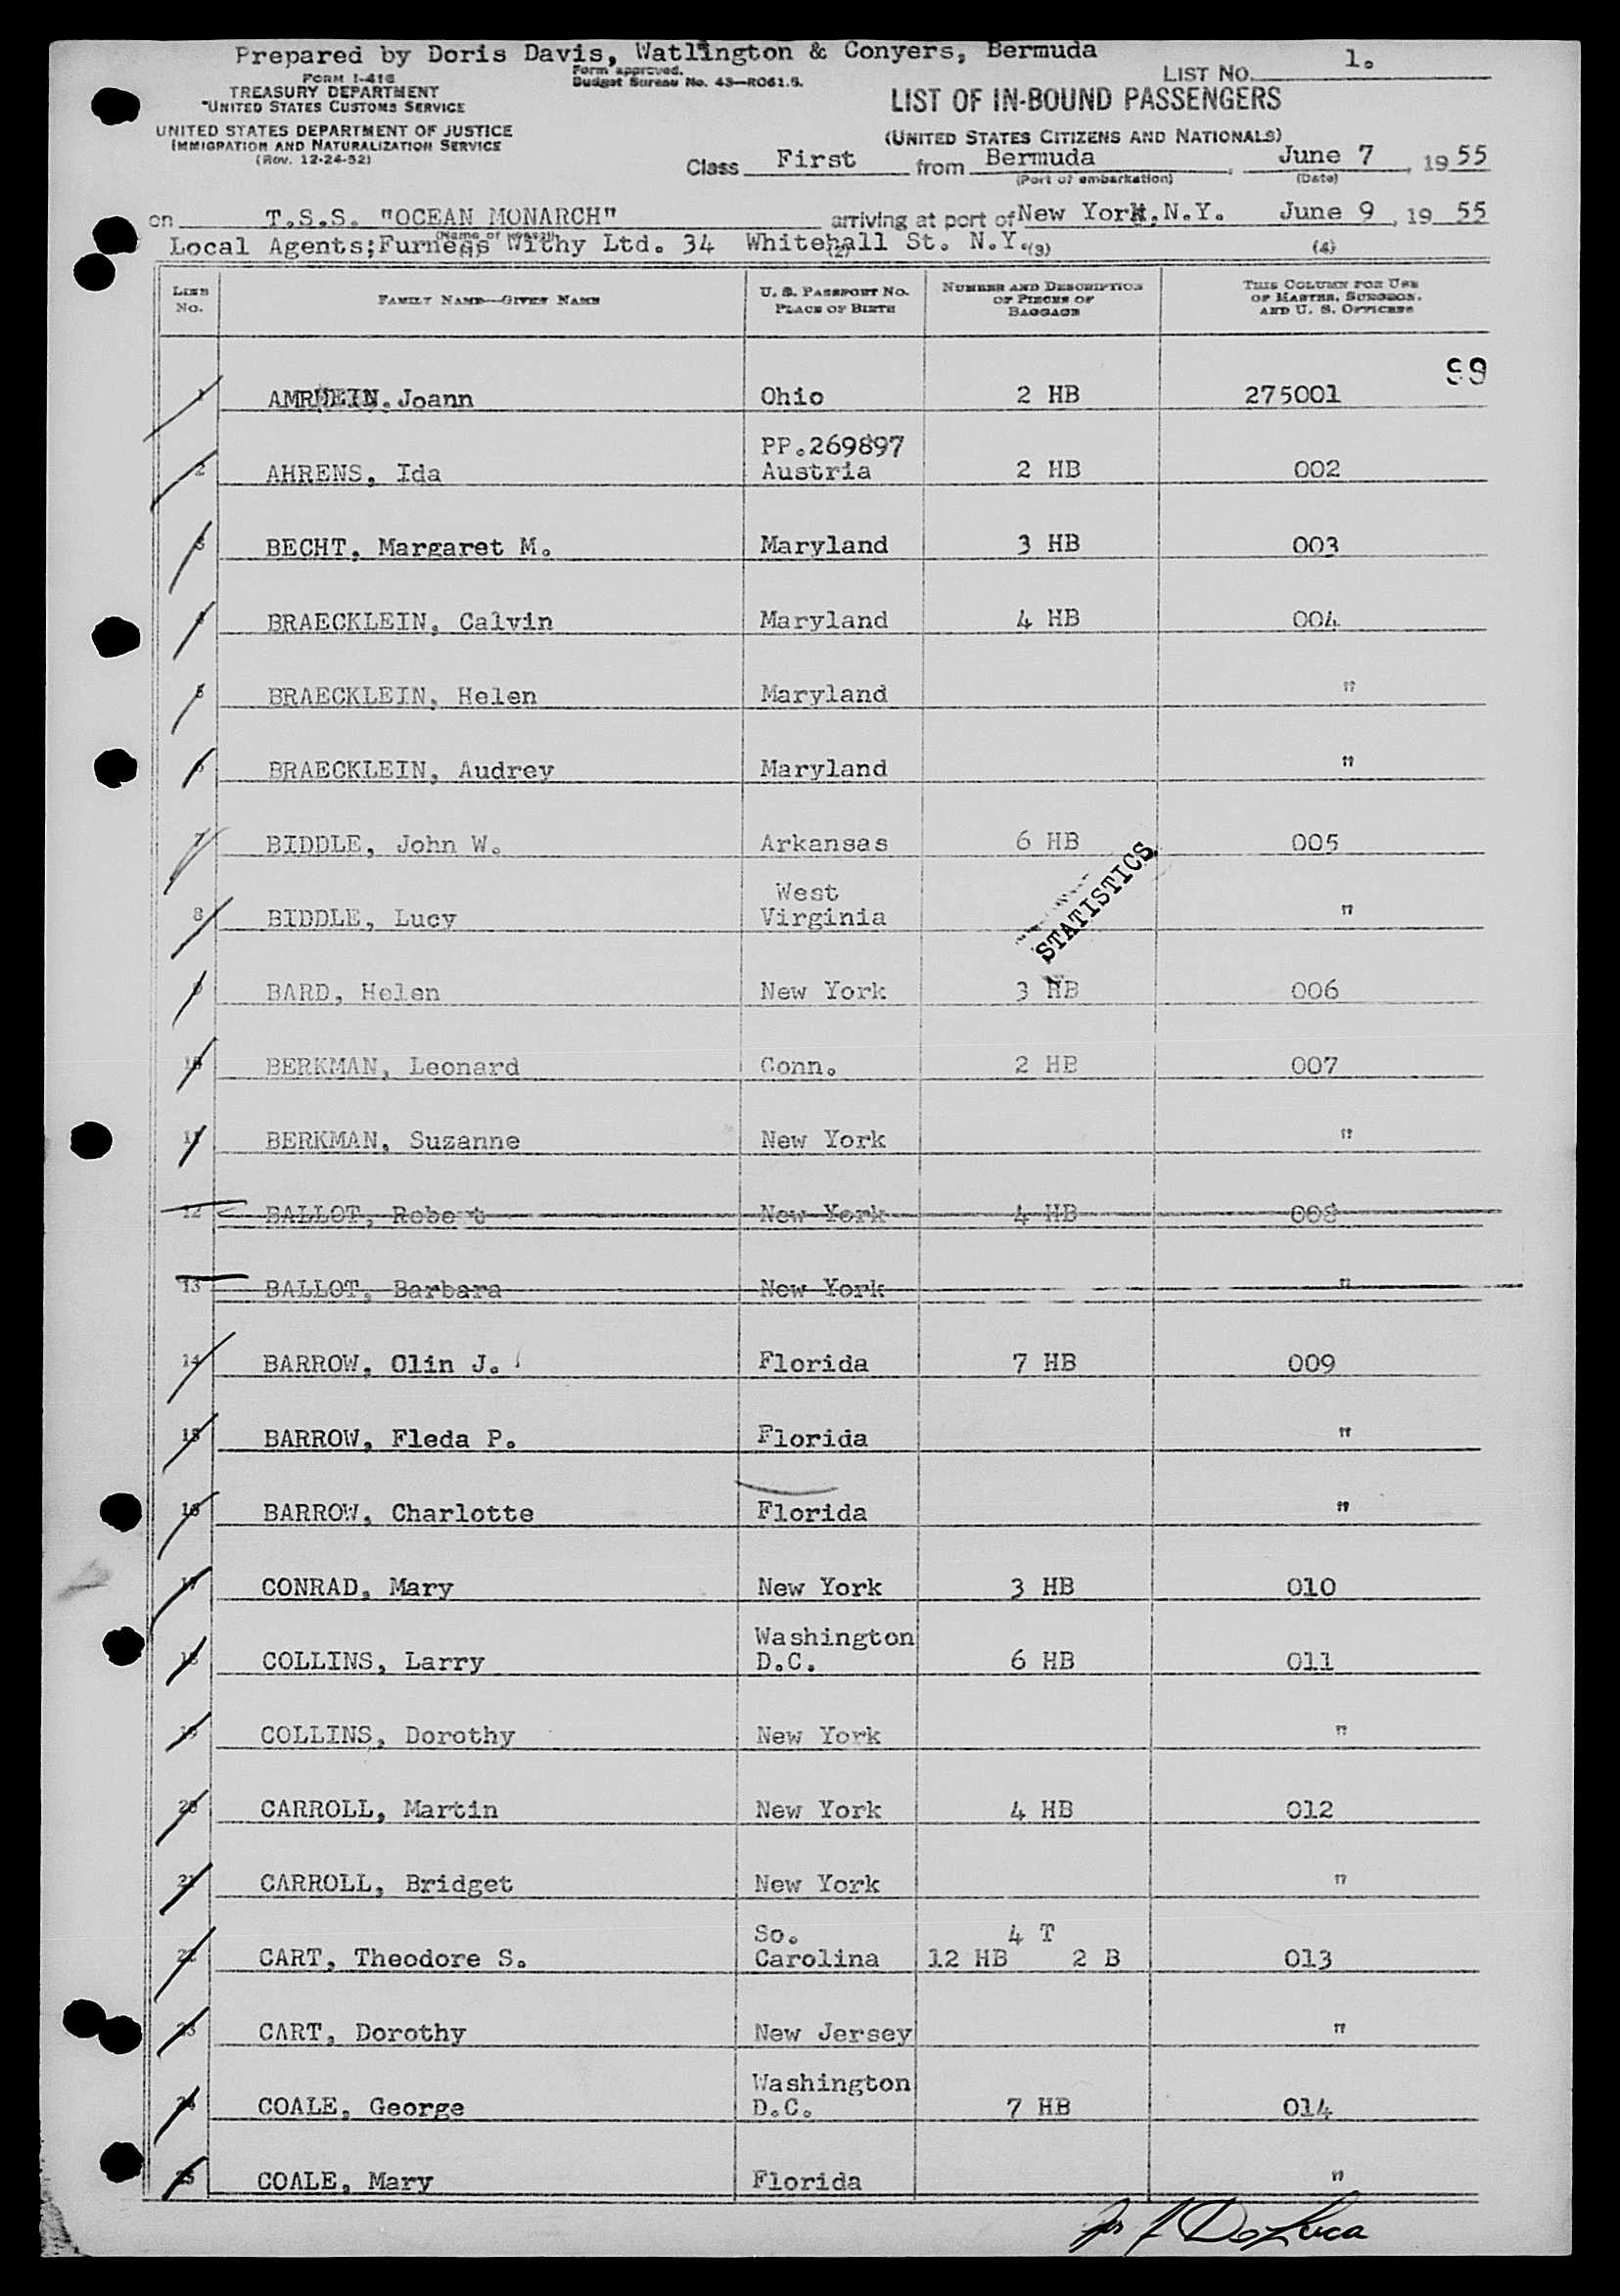 Prepared by Doris Davis, Watlington & Conyers, Bermuda
FORM I-418
TREASURY DEPARTMENT
UNITED STATES CUSTOMS SERVICE
UNITED STATES DEPARTMENT OF JUSTICE
IMMIGRATION AND NATURALIZATION SERVICE
(Rev. 12-24-52)
Form approved.
Budget Bureau No. 43—R061.5.
LIST NO. 1.
LIST OF IN-BOUND PASSENGERS
(UNITED STATES CITIZENS AND NATIONALS)
Class First from Bermuda, June 7, 1955
(Port of embarkation) (Date)
on T.S.S. "OCEAN MONARCH" arriving at port of New York, N.Y. June 9, 1955
(Name of vessel)
Local Agents;Furness Withy Ltd. 34 Whitehall St. N.Y.
(1) (2) (3) (4)
LINE No. FAMILY NAME—GIVEN NAME U. S. PASSPORT NO. PLACE OF BIRTH NUMBER AND DESCRIPTION OF PIECES OF BAGGAGE THIS COLUMN FOR USE OF MASTER, SURGEON, AND U. S. OFFICERS
99
1 AMRHEIN, Joann Ohio 2 HB 275001
PP.269897
2 AHRENS, Ida Austria 2 HB 002
3 BECHT, Margaret M. Maryland 3 HB 003
4 BRAECKLEIN, Calvin Maryland 4 HB 004
5 BRAECKLEIN, Helen Maryland "
6 BRAECKLEIN, Audrey Maryland "
7 BIDDLE, John W. Arkansas 6 HB 005
West
8 BIDDLE, Lucy Virginia "
STATISTICS
9 BARD, Helen New York 3 HB 006
10 BERKMAN, Leonard Conn. 2 HB 007
11 BERKMAN, Suzanne New York "
12 BALLOT, Robert New York 4 HB 008
13 BALLOT, Barbara New York "
14 BARROW, Olin J. Florida 7 HB 009
15 BARROW, Fleda P. Florida "
16 BARROW, Charlotte Florida "
17 CONRAD, Mary New York 3 HB 010
Washington
18 COLLINS, Larry D.C. 6 HB 011
19 COLLINS, Dorothy New York "
20 CARROLL, Martin New York 4 HB 012
21 CARROLL, Bridget New York "
So. 4 T
22 CART, Theodore S. Carolina 12 HB 2 B 013
23 CART, Dorothy New Jersey "
Washington
24 COALE, George D.C. 7 HB 014
25 COALE, Mary Florida "
DeLuca